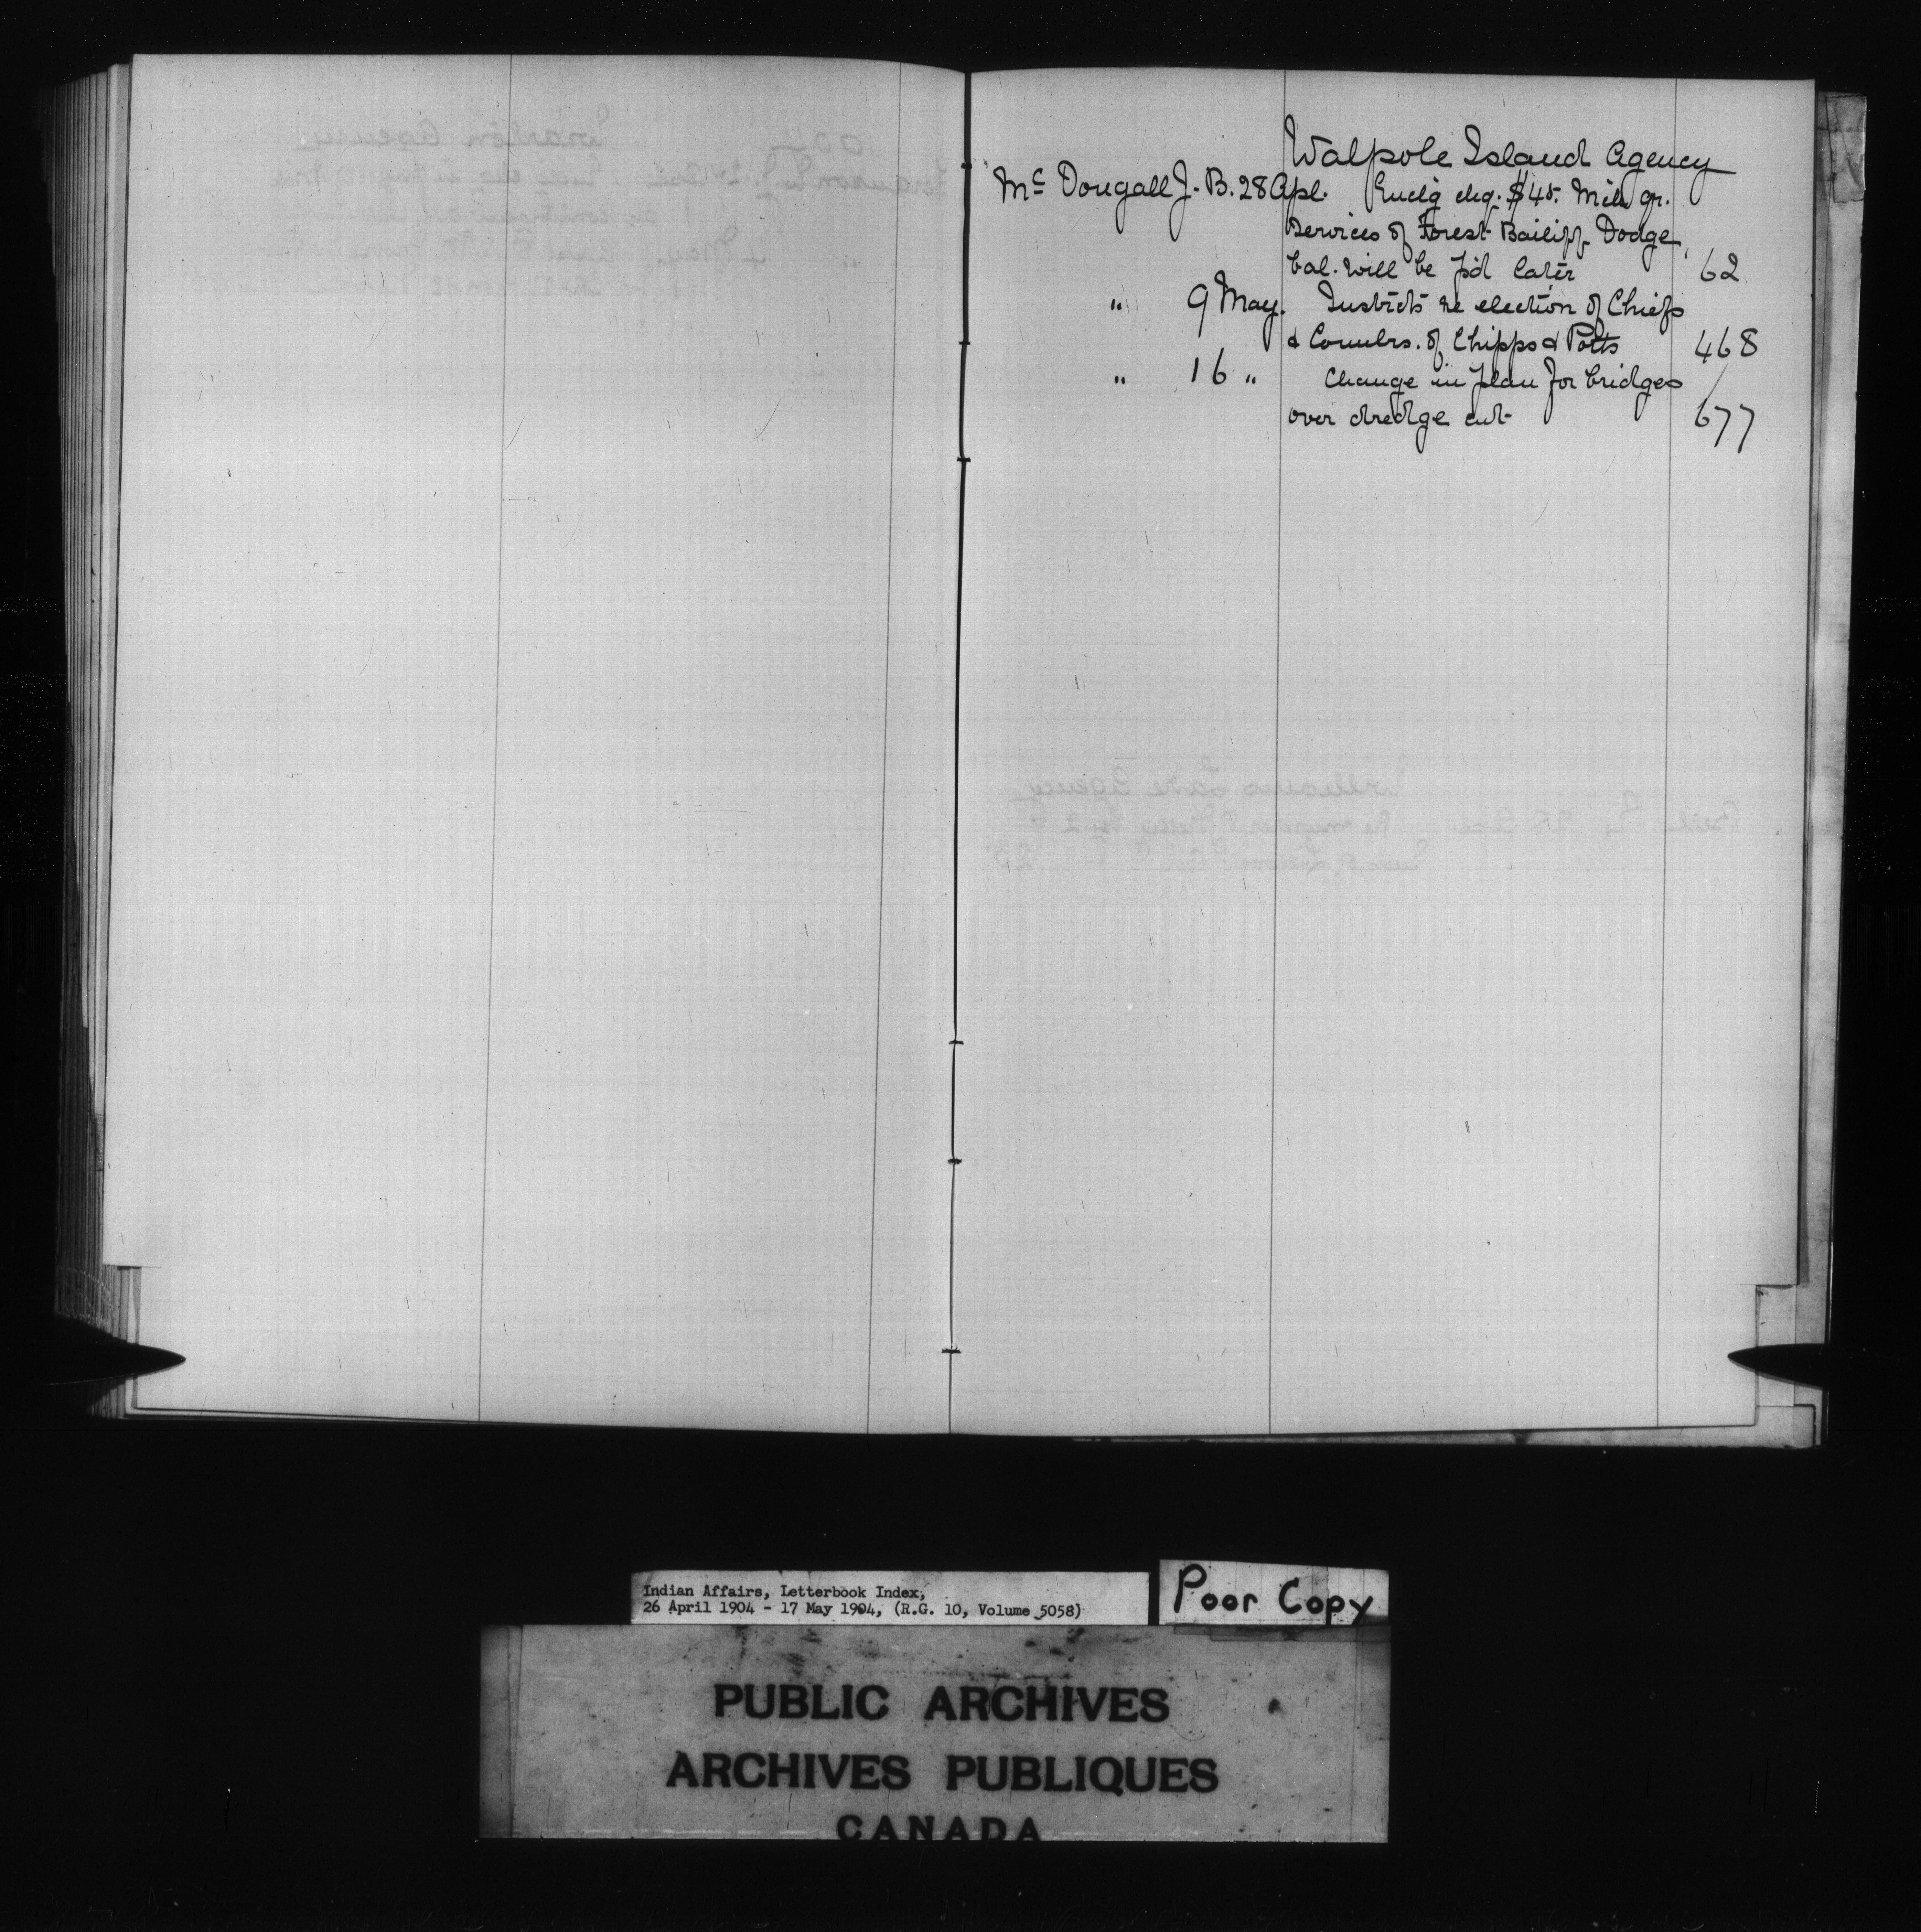 Walpole Island Agency
McDougall J. B. 28 Apl. Enclg chq. $45. Mch qr.
Services of Forest Bailiff Dodge,
bal. will be p'd later 62
" 9 May. Instrcts re election of Chiefs
& Counlrs. of Chipps & Potts 468
" 16 " Change in plan for bridges
over dredge cut 677
Indian Affairs, Letterbook Index,
26 April 1904 - 17 May 1904, (R.G. 10, Volume 5058)
Poor Copy
PUBLIC ARCHIVES
ARCHIVES PUBLIQUES
CANADA